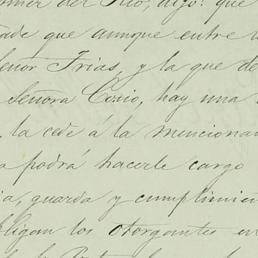 del Rio, digo: que
que aunque entre
Señor Frias, y la que de
Señora Cosio, hay una
, la cede á la mencionan
podrá hacerle cargo
ia, guarda y cumplimien
bligan los otorgantes en